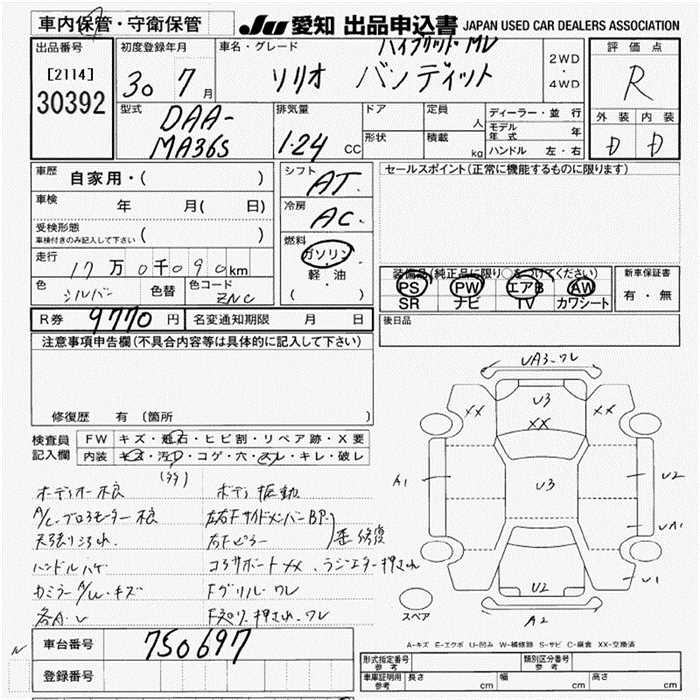 車内保管・守衛保管
JU 愛知 出品申込書 JAPAN USED CAR DEALERS ASSOCIATION
出品番号
[2114]
30392
初度登録年月
30 7月
車名・グレード
ハイブリット・MV
ソリオ バンディット
2WD
・
4WD
評価点
R
外装 内装
D D
型式
DAA-
MA36S
排気量
1.24 CC
ドア
形状
定員 人
積載 kg
ディーラー・並行
モデル年式 年
ハンドル 左・右
車歴 自家用・( )
車検 年 月( 日)
受検形態
車検付きのみ記入して下さい ( )
走行 17万0千090km
色 シルバー 色替 色コード ZNC
シフト AT.
冷房 AC.
燃料
ガソリン
・
軽・油
( )
セールスポイント(正常に機能するものに限ります)
装備品(純正品に限り○をつけてください)
PS PW エアB AW
SR ナビ TV カワシート
新車保証書
有・無
R券 9770円 名変通知期限 月 日
後日品
注意事項申告欄(不具合内容等は具体的に記入して下さい)
修復歴 有(箇所 )
検査員
記入欄
FW キズ・飛石・ヒビ割・リペア跡・X要
内装 キズ・汚レ・コゲ・穴・スレ・キレ・破レ
オーディオー不良 ボディ振動
A/C.ブロアモーター不良 左右FサイドメンバーBP.
天張り汚れ 右Fピラー 歪修復
ハンドルハゲ コアサポートXX、ラジエター押され
Fグリル・ワレ
VA3.ワレ
XX V3 XX
XX
A1 V3 V2
VA1
V2 V1
A2
スペア
A-キズ E-エクボ U-凹み W-補修跡 S-サビ C-腐食 XX-交換済
車台番号 750697
登録番号
形式指定番号
参考
類別区分番号
参考
車庫証明用
参考
長さ cm 幅 cm 高さ cm